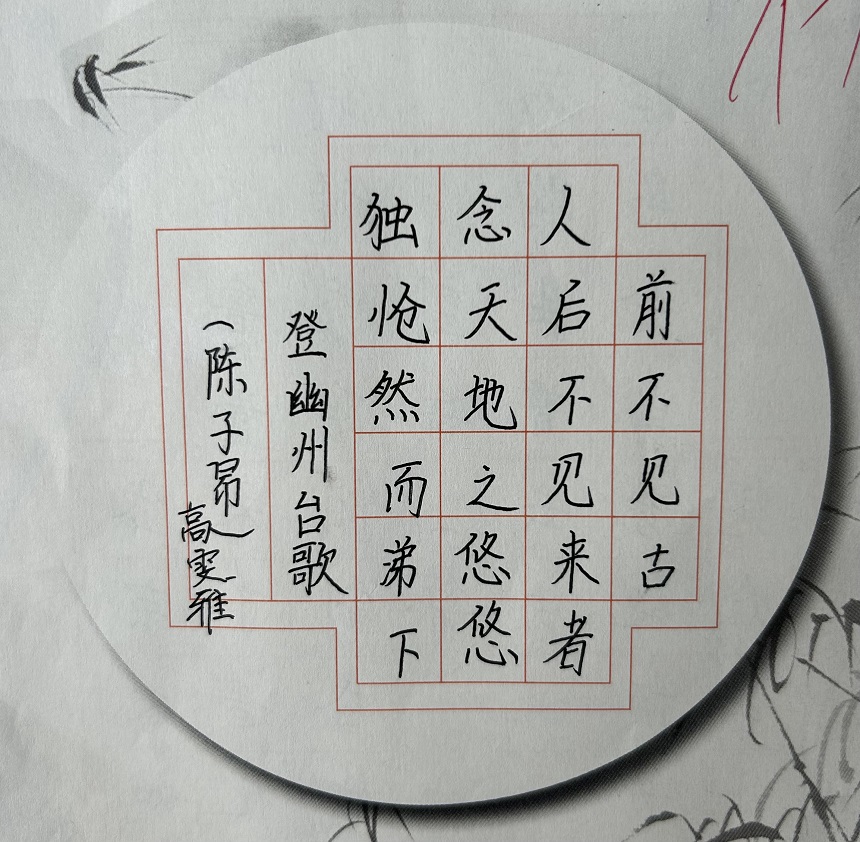 前不见古
人后不见来者
念天地之悠悠
独怆然而涕下
登幽州台歌
（陈子昂
高雯雅